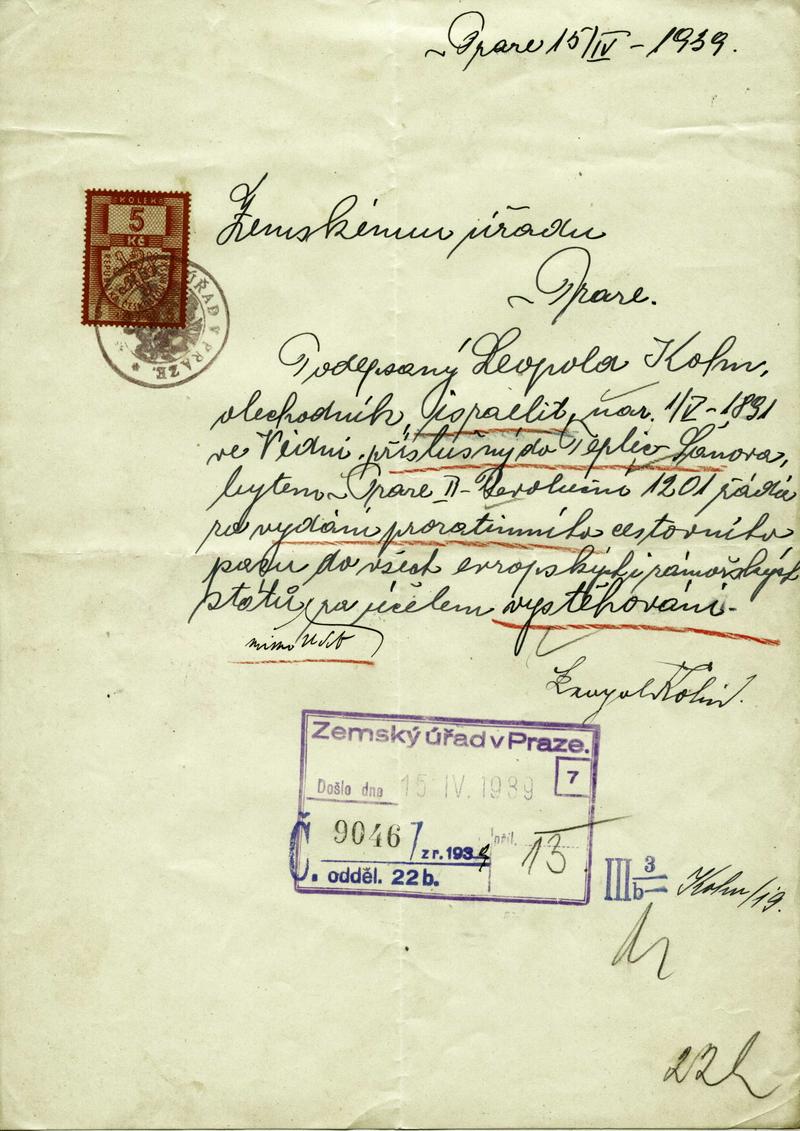 v Praze 15/IV - 1939.
KOLEK
5
Kč
Zemskému úřadu
v Praze.
ÚŘAD V PRAZE.
Podepsaný Leopold Kohn,
obchodník, israelit, nar. 1/V - 1891
ve Vídni, příslušný do Teplic Šanova,
bytem v Praze II - Revoluční 1201 žádá
za vydání prozatimního cestovního
pasu do všech evropských i zámořských
států, za účelem vystěhování -
mimo
Leopold Kohn.
Zemský úřad v Praze.
7
Došlo dne 15. IV. 1939
Č. 9046/ z r. 1939
příl. 13
odděl. 22 b.
III 3/b Kohn/19.
22b